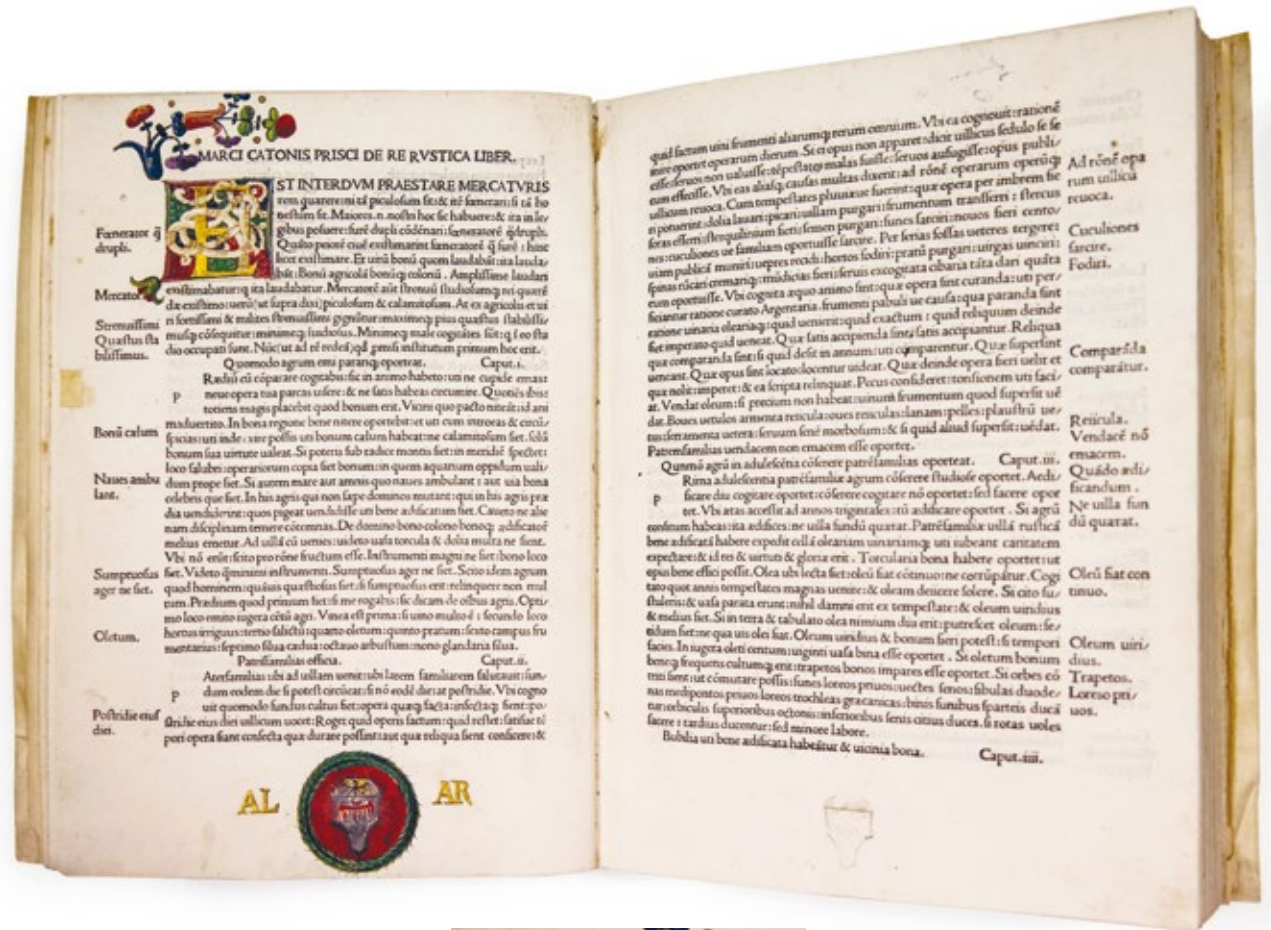 MARCI CATONIS PRISCI DE RE RVSTICA LIBER.
EST INTERDVM PRAESTARE MERCATVRIS
rem quærere: ni tā piculosum sit: & itē fœnerari: si tā ho
nestum sit. Maiores .n. nostri hoc sic habuere: & ita in le/
gibus posuere: furē dupli cōdēnari: fœneratorē q̄drupli.
Quāto peiorē ciuē existimarint fœneratorē q̄ furē: hinc
licet existimare. Et uirū bonū quom laudabāt: ita lauda/
bāt: Bonū agricolā bonūq; colonū. Amplissime laudari
existimabatur: q ita laudabatur. Mercatorē aūt strenuū studiosumq; rei quærē
dæ existimo: uerū (ut supra dixi) piculosum & calamitosum. At ex agricolis et ui
ri fortissimi & milites strenuissimi gignūtur: maximeq; pius quæstus stabilissi/
musq; cōsequitur: minimeq; inuidiosus. Minimeq; male cogitātes sūt: q ī eo stu
dio occupati sunt. Nūc: ut ad rē redeā: qd promisi institutum primum hoc erit.
Quomodo agrum emi parariq; oporteat. Caput.i.
p Rædiū cū cōparare cogitabis: sic in animo habeto: uti ne cupide emas:
neue opera tua parcas uisere: & ne satis habeas circumire. Quotiēs ibis:
totiens magis placebit quod bonum erit. Vicini quo pacto niteāt: id ani
maduertito. In bona regione bene nitere oportebit: et uti eum introeas & circū/
spicias: uti inde exire possis uti bonum cælum habeat: ne calamitosum siet. solū
bonum sua uirtute ualeat. Si poteris sub radice montis siet: in meridiē spectet:
loco salubri: operariorum copia siet bonum: in quem aquarium oppidum uali/
dum prope siet. Si autem mare aut amnis quo naues ambulant: aut uia bona
celebris que siet. In his agris qui non sæpe dominos mutant: qui in his agris præ
dia uendiderint: quos pigeat uendidisse uti bene ædificatum siet. Caueto ne alie
nam disciplinam temere cōtemnas. De domino bono colono bonoq; ædificatoē
melius emetur. Ad uillā cū uenies: uideto uasa torcula & dolia multa ne sient.
Vbi nō erūt: scito pro rōne fructum esse. Instrumenti magni ne siet: bono loco
siet. Videto q̄minimi instrumenti. Sumptuosus ager ne siet. Scito idem agrum
quod hominem: quāuis quæstuosus siet: si sumptuosus erit: relinquere non mul
tum. Prædium quod primum siet: si me rogabis: sic dicam de oībus agris. Opti/
mo loco emito iugera cētū agri. Vinea est prima: si uino multo ē: secundo loco
hortus irriguus: tertio salictū: quarto oletum: quinto pratum: sexto campus fru
mentarius: septimo silua cædua: octauo arbustum: nono glandaria silua.
Patrisfamilias officia. Caput.ii.
p Aterfamilias ubi ad uillam uenit: ubi larem familiarem salutauit: fun/
dum eodem die si potest circūeat: si nō eodē die: at postridie. Vbi cogno
uit quomodo fundus cultus siet: opera quæq; facta: infectaq; sient: po/
stridie eius diei uillicum uocet: Roget quid operis factum: quid restet: satisue tē
pori opera siant confecta quæ durare possint: aut quæ reliqua sient conficere: &
Fœnerator q̄
drupli.
Mercator
Strenuissimi
Quæstus sta
bilissimus.
Bonū cælum
Naues ambu
lant.
Sumptuosus
ager ne siet.
Oletum.
Postridie eiuſ
diei.
AL AR
quid factum uini frumenti aliarumq; rerum omnium. Vbi ea cognouit: rationē
inire oportet operarum dierum. Si ei opus non apparet: dicit uillicus sedulo se fe
cisse: seruos non ualuisse: tēpestates malas fuisse: seruos aufugisse: opus publi/
cum effecisse. Vbi eas aliasq; causas multas dixerit: ad rōnē operarum operūq;
uillicum reuoca. Cum tempestates pluuiæ fuerint: quæ opera per imbrem fie
ri potuerint: dolia lauari: picari: uillam purgari: frumentum transferri: stercus
foras efferri: sterquilinium fieri: semen purgari: funes sarciri: nouos fieri cento/
nes: cuculiones ue familiam oportuisse sarcire. Per ferias fossas ueteres tergere:
uiam publicā muniri: uepres recidi: hortos fodiri: pratū purgari: uirgas uinciri:
spinas rūcari cremariq;: mūdicias fieri: seruis excogitata cibaria tāta dari quāta
eum oportuisse. Vbi cognita æquo animo sint: quæ opera sint curanda: uti per/
ficiantur ratione curato Argentaria. frumenti pabuli ue causa: quæ paranda sint
ratione uinaria oleariaq;: quid uenierit: quid exactum: quid reliquum deinde
siet imperato quid ueneat. Quæ satis accipienda sint: satis accipiantur. Reliqua
quæ comparanda sint: si quid desit in annum: uti comparentur. Quæ supersint
ueneant. Quæ opus sint locato: locentur uideat. Quæ deinde opera fieri uelit et
quæ nolit: imperet: & ea scripta relinquat. Pecus consideret: tonsionem uti faci/
at. Vendat oleum: si precium non habeat: uinum frumentum quod supersit uē
dat. Boues uetulos armenta reicula: oues reiculas: lanam: pelles: plaustrū ue/
tus: ferramenta uetera: seruum senē morbosum: & si quid aliud supersit: uēdat.
Patremfamilias uendacem non emacem esse oportet.
Quomō agrū in adulescētia cōserere patrēfamilias oporteat. Caput.iii.
p Rima adulescentia patrēfamiliæ agrum cōserere studiose oportet. Aedi/
ficare diu cogitare oportet: cōserere cogitare nō oportet: sed facere opor
tet. Vbi ætas accessit ad annos trigintasex: tū ædificare oportet. Si agrū
consitum habeas: ita ædifices: ne uilla fundū quærat. Patrēfamiliæ uillā rusticā
bene ædificatā habere expedit cellā oleariam uinariamq; uti iubeant caritatem
expectare: & id rei & uirtuti & gloriæ erit. Torcularia bona habere oportet: ut
opus bene effici possit. Olea ubi lecta siet: oleū fiat cōtinuo: ne corrūpatur. Cogi
tato quot annis tempestates magnas uenire: & oleam deiicere solere. Si cito su/
stuleris: & uasa parata erunt: nihil damni erit ex tempestate: & oleum uiridius
& melius fiet. Si in terra & tabulato olea nimium diu erit: putrescet oleum: fe/
tidum fiet: ne qua uis olei fiat. Oleum uiridius & bonum fieri potest: si tempori
facies. In iugera oleti centum: uiginti uasa bina esse oportet. Si oletum bonum
beneq; frequens cultumq; erit: trapetos bonos impares esse oportet. Si orbes cō
triti sient: ut cōmutare possis: funes loreos priuos: uectes senos: fibulas duode/
nas medipontos priuos loreos trochleas græcanicas: binis funibus sparteis ducā
tur: orbiculis superioribus octonis: inferionbus senis citius duces. si rotas uoles
facere: tardius ducentur: sed minore labore.
Bubilia uti bene ædificata habeātur & uicinia bona. Caput.iiii.
Ad rōnē opa
rum uillicū
reuoca.
Cuculiones
sarcire.
Fodiri.
Comparāda
comparātur.
Reiicula.
Vendacē nō
emacem.
Quādo ædi/
ficandum.
Ne uilla fun
dū quærat.
Oleū fiat con
tinuo.
Oleum uiri/
dius.
Trapetos.
Loreso pri/
uos.